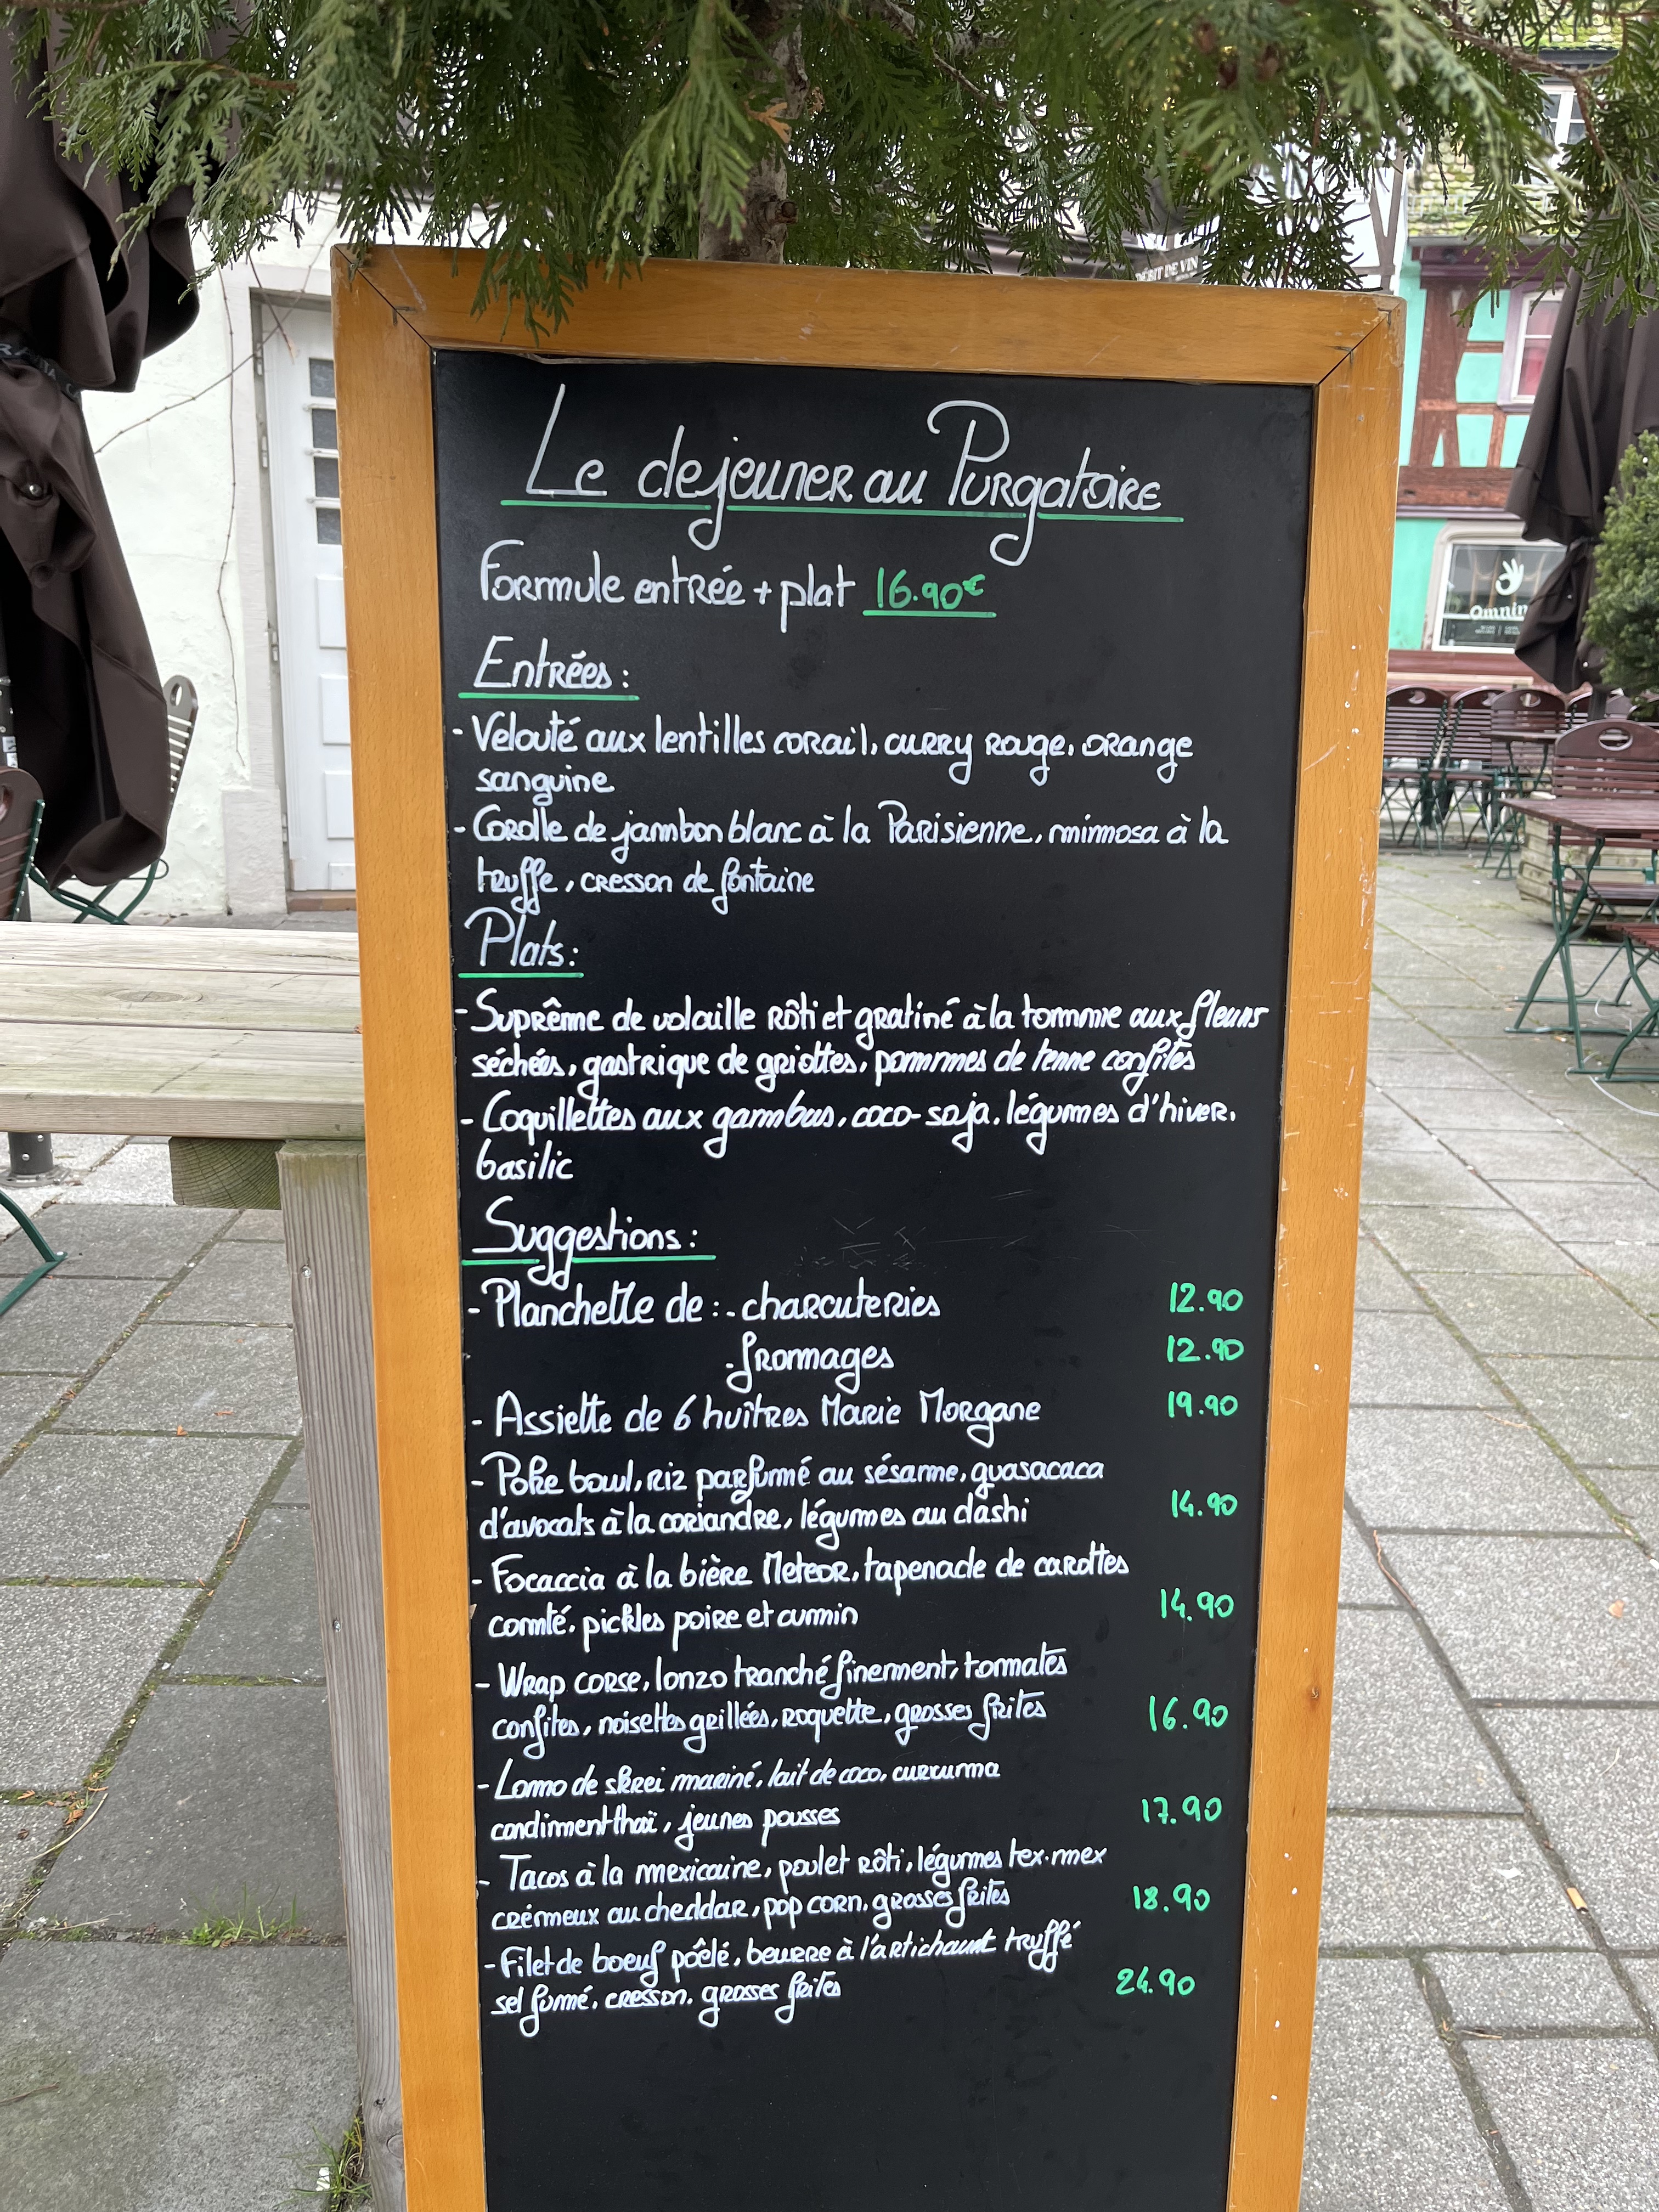 DÉBIT DE VIN
Omnino
Le dejeuner au Purgatoire
Formule entrée + plat 16.90€
Entrées :
- Velouté aux lentilles corail, curry rouge, orange
sanguine
- Corolle de jambon blanc à la Parisienne, mimosa à la
truffe, cresson de fontaine
Plats :
- Suprême de volaille rôti et gratiné à la tomme aux fleurs
séchées, gastrique de griottes, pommes de terre confites
- Coquillettes aux gambas, coco-soja, légumes d'hiver,
basilic
Suggestions :
- Planchette de : - charcuteries 12.90
- fromages 12.90
- Assiette de 6 huîtres Marie Morgane 19.90
- Poke bowl, riz parfumé au sésame, guasacaca
d'avocats à la coriandre, légumes au dashi 14.90
- Focaccia à la bière Meteor, tapenade de carottes
comté, pickles poire et cumin 14.90
- Wrap corse, lonzo tranché finement, tomates
confites, noisettes grillées, roquette, grosses frites 16.90
- Lomo de skrei mariné, lait de coco, curcuma
condiment thaï, jeunes pousses 17.90
- Tacos à la mexicaine, poulet rôti, légumes tex-mex
crémeux au cheddar, pop corn, grosses frites 18.90
- Filet de boeuf pôelé, beurre à l'artichaut truffé
sel fumé, cresson, grosses frites 24.90